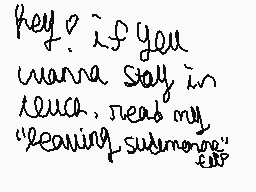 hey! if you
wanna stay in
touch. read my
"leaving sudomemo"